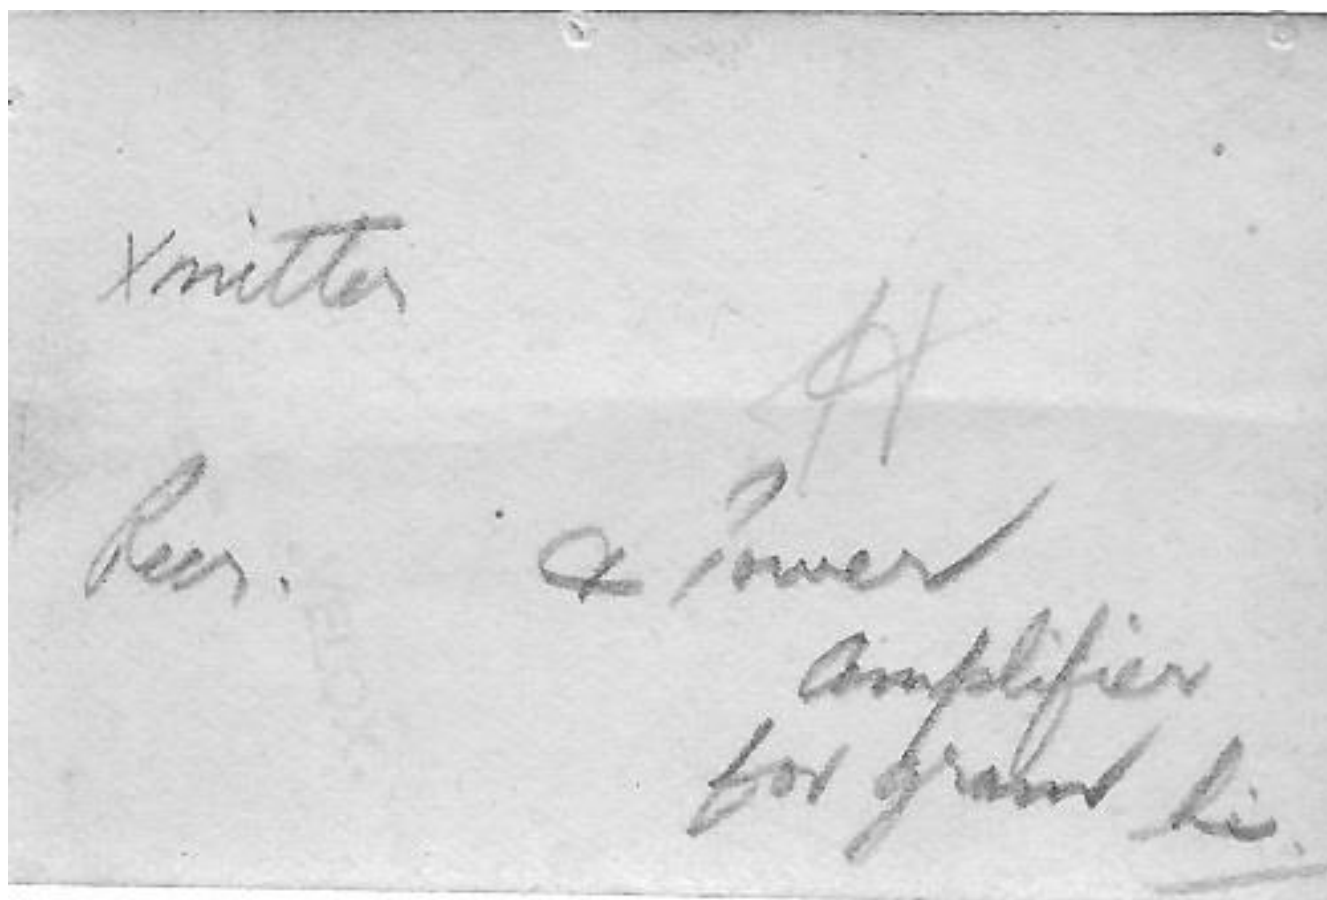 Xmitter
Recr. & Power
amplifier
for gram